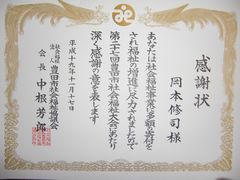 感謝状
岡本修司様
あなたは社会福祉事業に多額の寄付を
され福祉の増進に尽力されましたので
第二十七回豊田市社会福祉大会にあたり
深く感謝の意を表します
平成十九年十一月十七日
社会福祉法人 豊田市社会福祉協議会
会長 中根芳郎